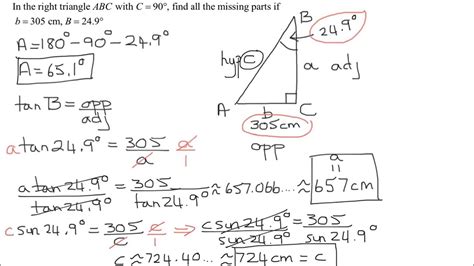 In the right triangle ABC with C = 90°, find all the missing parts if
b = 305 cm, B = 24.9°
A=180°-90°-24.9°
A=65.1°
B
24.9°
hyp c
a adj
A
b
C
305cm
opp
tan B = opp/adj
a tan 24.9° = 305/a a/1
a
=
a tan 24.9°/tan 24.9° = 305/tan 24.9° ≈ 657.066.... ≈ 657cm
c sin 24.9° = 305/c c/1 ⇒ c sin 24.9°/sin 24.9° = 305/sin 24.9°
c ≈ 724.40... ≈ 724 cm = c